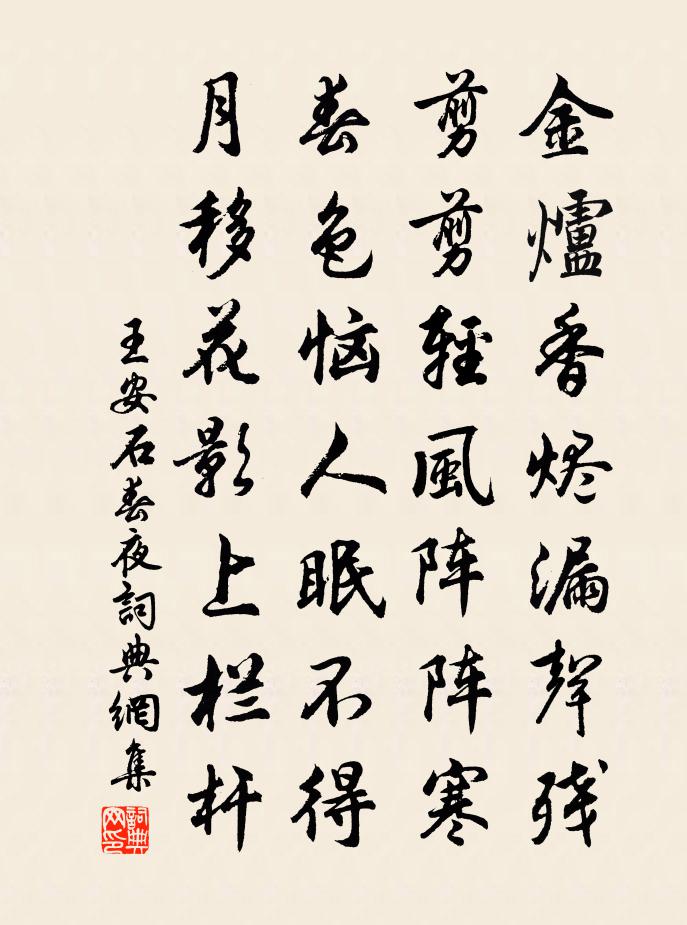 金爐香烬漏聲残
剪剪輕風阵阵寒
春色恼人眠不得
月移花影上栏杆
王安石春夜詞典網集
詞典網印